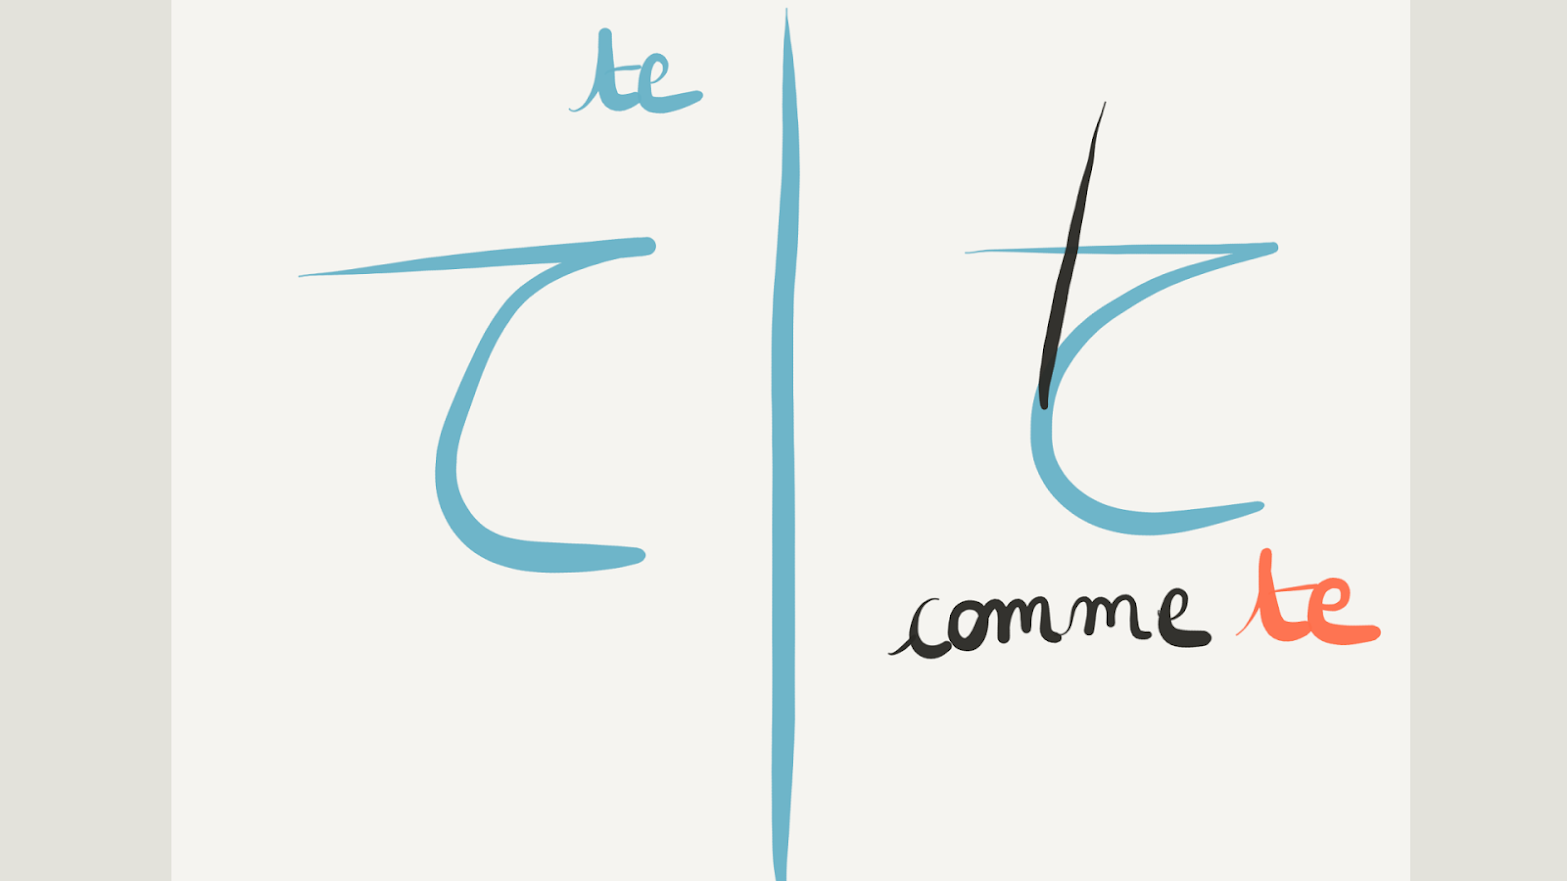 te
て
て
comme te